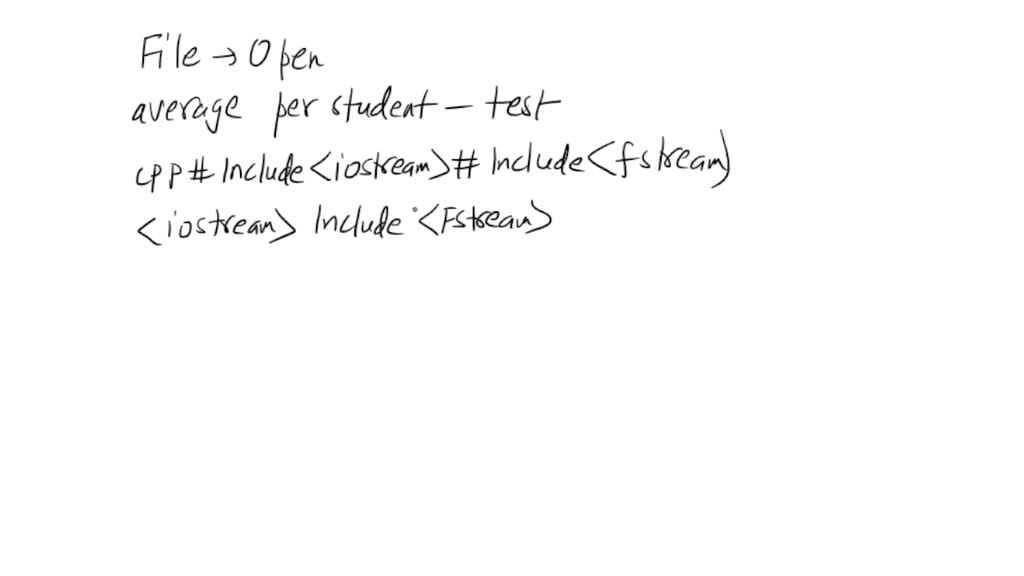 File → Open
average per student - test
cpp # Include <iostream> # Include <fstream>
<iostream> Include <Fstream>